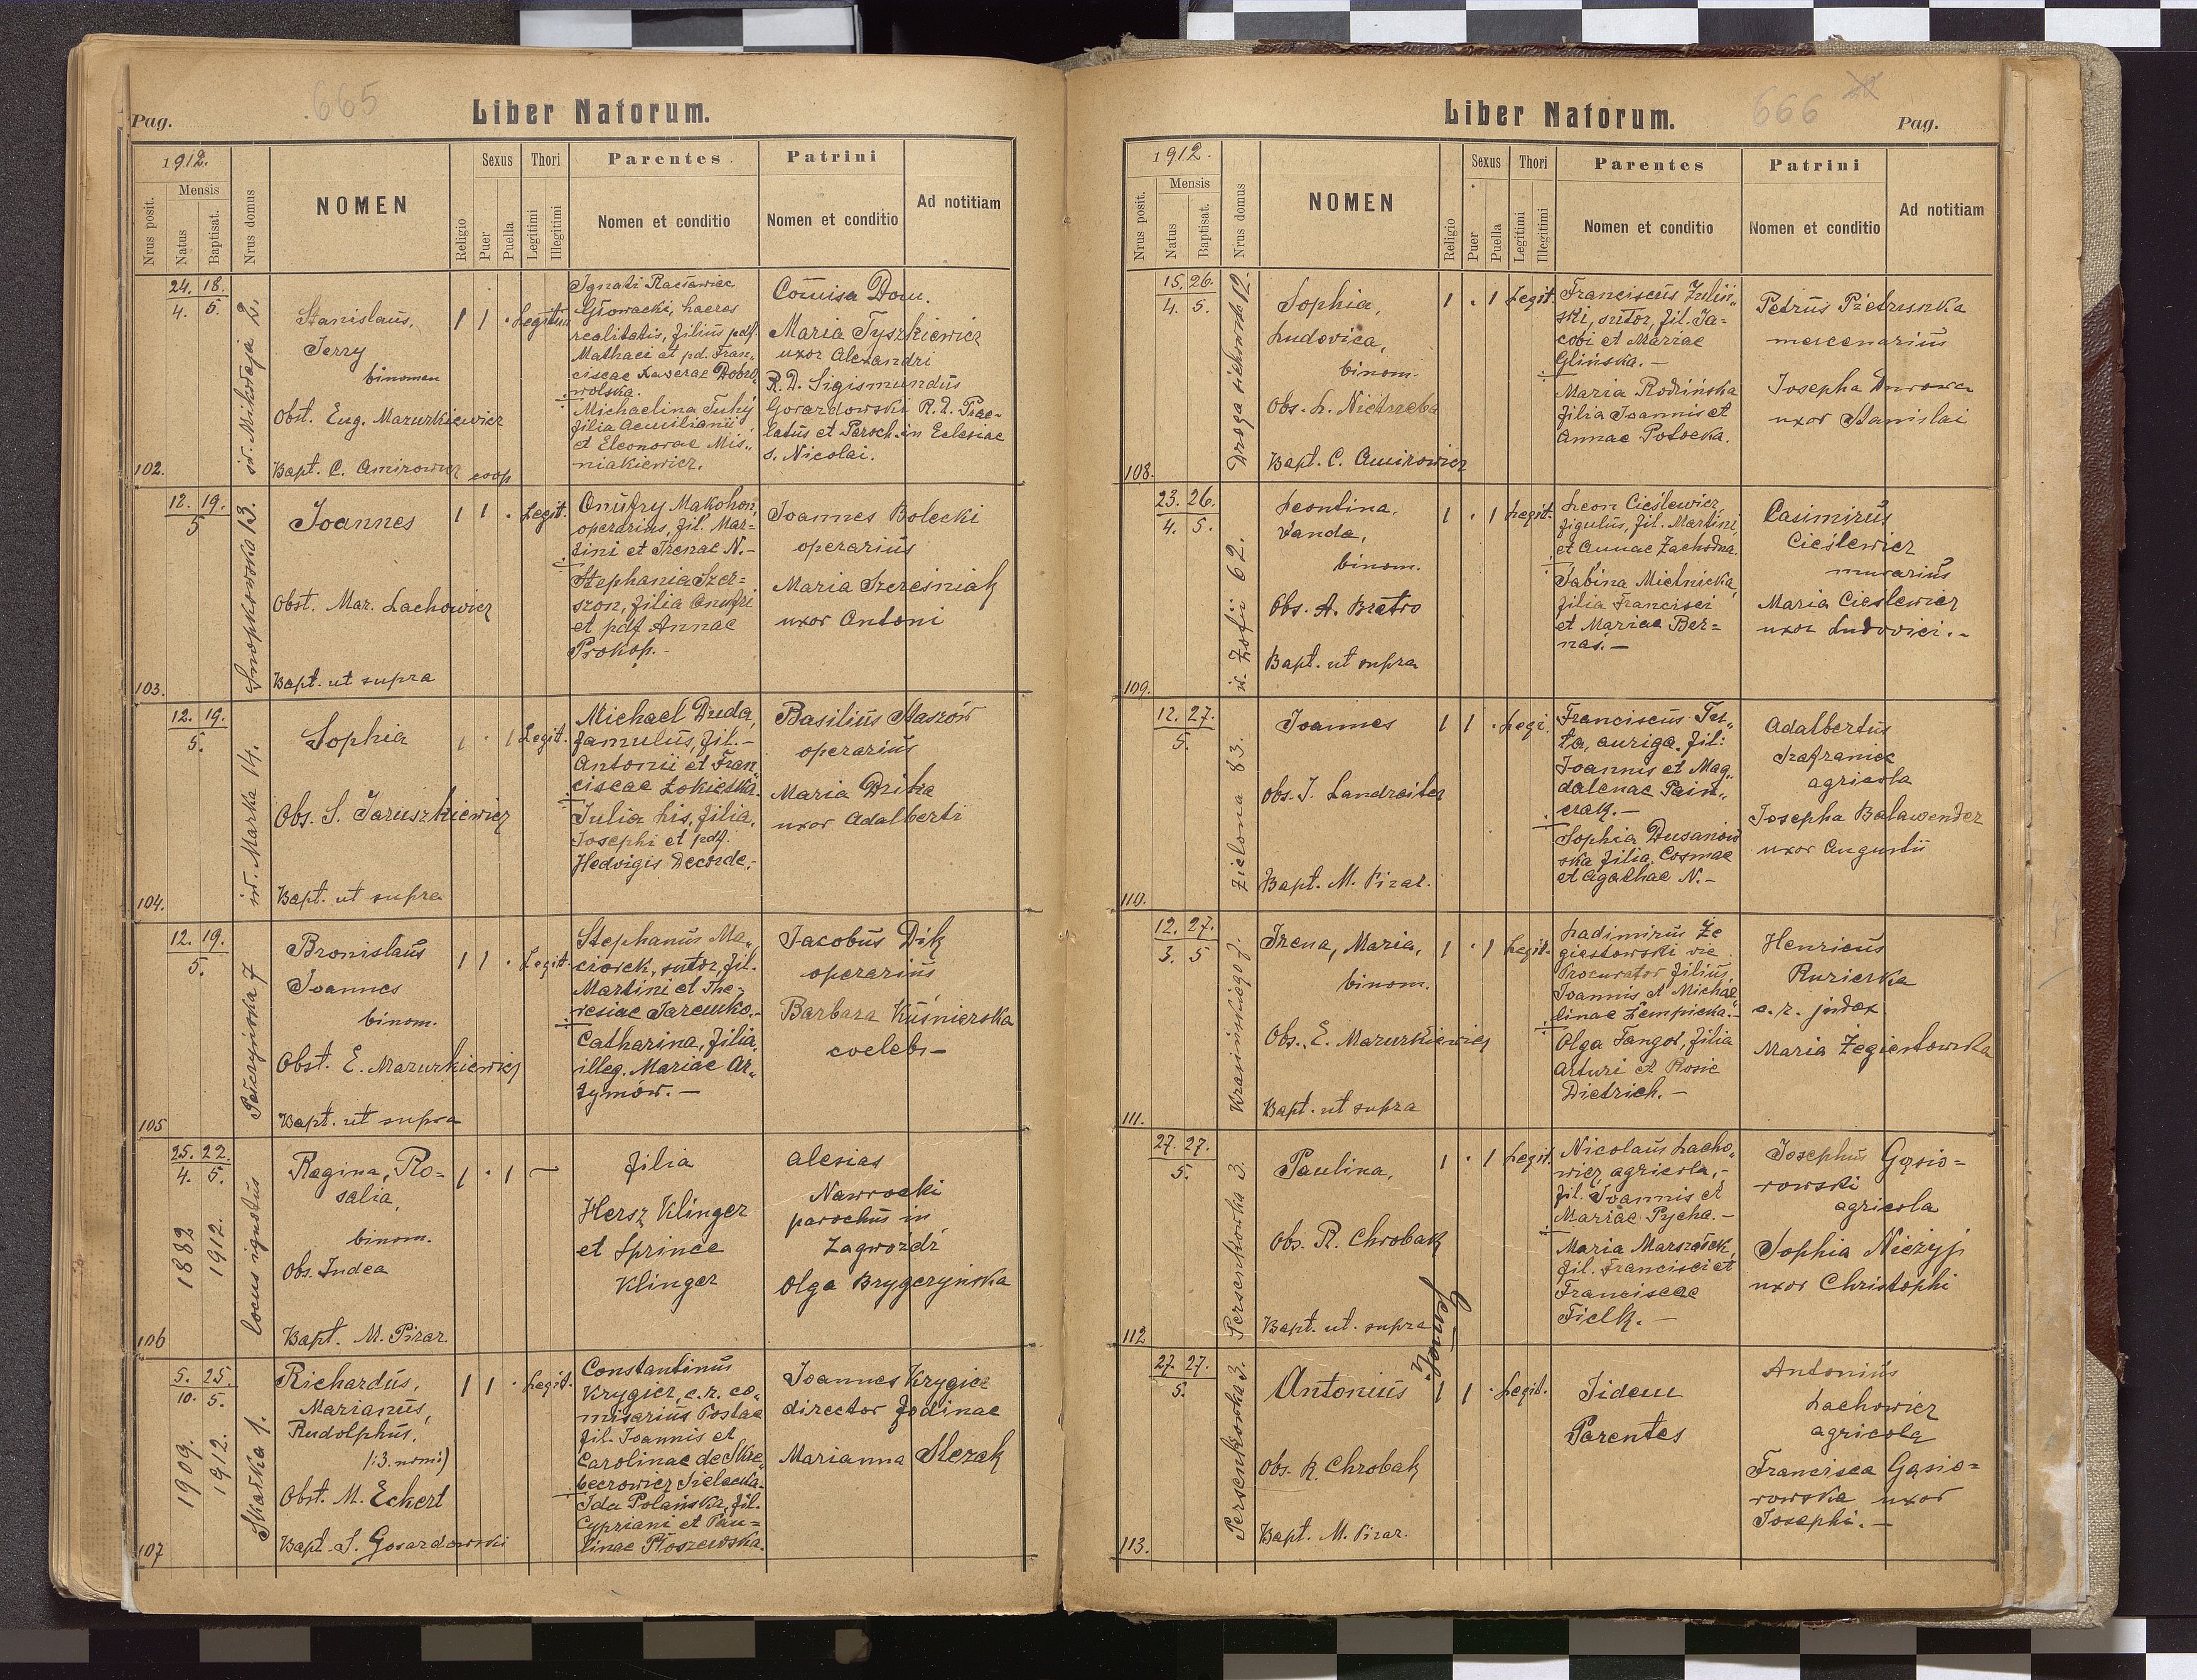 665
Pag.
Liber Natorum.
1912.
Nrus posit.
Mensis
Natus
Baptisat.
Nrus domus
NOMEN
Religio
Sexus
Puer
Puella
Thori
Legitimi
Illegitimi
Parentes
Nomen et conditio
Patrini
Nomen et conditio
Ad notitiam
102.
24. 18.
4. 5.
św. Mikołaja 2.
Stanislaus,
Jerzy
binomen
Obst. Eug. Mazurkiewicz
Bapt. C. Amirowicz coop
1 1 . Legitim
Ignati Racławice
Głowacki, haeres
realitatis, filius pdf.
Mathaei et pd. Fran„
ciscae Xaverae Dobro„
wolska.
Michaelina Tuhý
filia Aemilianii
et Eleonorae Mis„
niakiewicz.
Comisa Dom.
Maria Tyszkiewicz
uxor Alexandri
R. D. Sigismundus
Gorazdowski R. L. Prae-
latus et Paroch. in Eclesiae
s. Nicolai.
103.
12. 19.
5
Snopkowska 13.
Joannes
Obst. Mar. Lachowicz
Bapt. ut supra
1 1 . Legit.
Onufry Makohon,
operarius, fil. Mar=
tini et Irenae N.-
Stephania Szer=
szon, filia Onufri
et pdf Annae
Prokop.-
Joannes Bolecki
operarius
Maria Szereśniak
uxor Antoni
104.
12. 19.
5.
św. Marka 14.
Sophia
Obs. S. Jaruszkiewicz
Bapt. ut supra
1 . 1 Legit.
Michael Duda,
famulus, fil.-
Antonii et Fran„
ciscae Łokietka.
Julia Lis, filia,
Josephi et pdf.
Hedvigis Decorde.-
Basilius Staszów
operarius
Maria Dzika
uxor Adalberti
105
12. 19.
5.
7
Bronislaus
Joannes
binom.
Obst. E. Mazurkiewicz
Bapt. ut supra
1 1 . Legit.
Stephanus Ma„
ciorek, sutor, fil.
Martini et The„
resiae Jaremko.-
Catharina, filia,
illeg. Mariae Ar„
tymów.-
Jacobus Dik
operarius
Barbara Kuśnierska
coelebs-
106
25. 22.
4. 5.
1889
1912.
locus ignotus
Regina, Ro=
salia,
binom.
Obs. Judea
Bapt. M. Pizar.
1 . 1 -
filia
Hersz Klinger
et Sprince
Klinger
Alesias
Nawrocki
parochus in
Zagwozdź
Olga Brygeryńska
107
5. 25.
10. 5.
1909.
1912.
Skałka 1.
Richardus,
Marianus,
Rudolphus,
/:3. nomi)
Obst. M. Eckert
Bapt. S. Gorazdowski
1 1 . Legit.
Constantinus
Krygier, c. r. co„
misarius Postae
fil. Joannis et
Carolinae de Skre„
Sielecka.
Ida Polańska, fil.
Cypriani et Pau=
linae Płoszewska.
Joannes Krygier
director fodinae
Marianna Slezak
666
Liber Natorum.
Pag.
1912.
Nrus posit.
Mensis
Natus
Baptisat.
Nrus domus
NOMEN
Religio
Sexus
Puer
Puella
Thori
Legitimi
Illegitimi
Parentes
Nomen et conditio
Patrini
Nomen et conditio
Ad notitiam
108.
15. 26.
4. 5.
Droga 12.
Sophia,
Ludovica,
binom.
Obs. L. Nietrzeba
Bapt. C. Amirowicz
1 . 1 Legit.
Franciscus Zuliń„
ski, sutor, fil. Ja=
cobi et Mariae
Glińska.-
Maria Rodzińska
filia Joannis et
Annae Potocka.
Petrus Pietruska
mercenarius
Josepha Durowa
uxor Stanislai
109.
23. 26.
4. 5.
św. Zofii 62.
Leontina,
Vanda,
binom.
Obs. A. Bretro
Bapt. ut supra
1 . 1 Legit.
Leon Cieślewicz,
figulus, fil. Martini
et Annae Zachodna.
Sabina Mielnicka,
filia Francisci
et Mariae Ber=
naś.-
Casimirus
Cieślewicz
murarius
Maria Cieslewicz
uxor Ludovici.-
110.
12. 27.
5.
Zielona 83.
Joannes
Obs. J. Landreiter
Bapt. M. Pizar.
1 1 . Legi.
Franciscus Tut„
ta, auriga, fil:
Joannis et Mag„
dalenae Pain„
czak.-
Sophia Dusanow
ska filia Cosmae
et Agathae N.-
Adalbertus
Szafraniec
agricola
Josepha Balawender
uxor Augustii
111.
12. 27.
3. 5
Krasińskiego 7.
Irena, Maria,
binom.
Obs. E. Mazurkiewicz
Bapt. ut supra
1 . 1 Legit.
Ladimirus Że
giestowski vic
Procurator filius,
Joannis et Michae„
linae Łempicka.-
Olga Tangot, filia
Arturi et Rosie
Dietrich.-
Henricus
Ruzicska
c. r. judex
Maria Żegiestowska
112
27. 27.
5.
Persenkowka 3.
Paulina,
Obs. R. Chrobak
Bapt. ut. supra
Gemini
1 . 1 Legit.
Nicolaus Lacho„
wicz, agricola,-
fil. Joannis et
Mariae Pycha.-
Maria Marszałek,
fil. Francisci et
Franciscae
Fielk.-
Josephus Gąsio=
rowski
agricola
Sophia Niezyj
uxor Christophi
113.
27. 27.
5.
Persenkowka 3.
Antonius
Obs. R. Chrobak
Bapt. M. Pizar.
1 1 . Legit.
Iidem
Parentes
Antonius
Lachowicz
agricola
Francisca Gąsio=
rowska uxor
Josephi.-